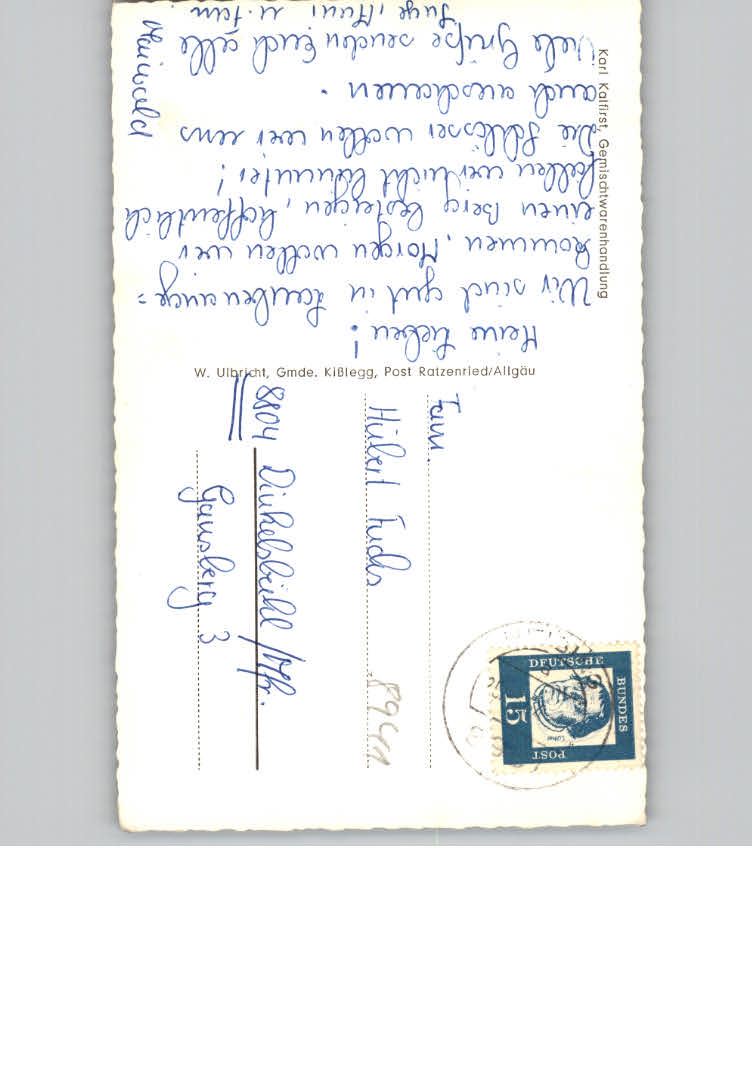 Meine Lieben!
Wir sind gut in
kommen. Morgen wollen wir
einen Berg besteigen, hoffentlich
fallen wir nicht herunter!
Die Schlösser wollen wir uns
auch anschauen.
Viele Grüße senden Euch alle
Inge, Hans u. Fam.
Karl Kalfirst, Gemischtwarenhandlung
W. Ulbricht, Gmde. Kißlegg, Post Ratzenried/Allgäu
DEUTSCHE
BUNDES
POST
15
Luther
Fam.
Hubert Fuchs
8804 Dinkelsbühl /Mfr.
Gaisberg 3